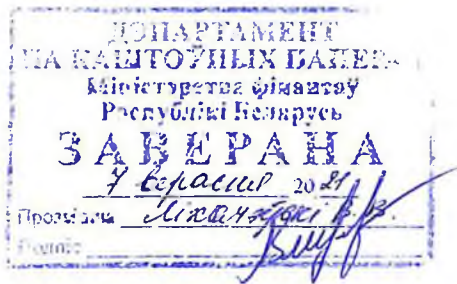 ДЭПАРТАМЕНТ
ПА КАШТОЎНЫХ ПАПЕРАХ
Міністэрства фінансаў
Рэспублікі Беларусь
ЗАВЕРАНА
7 верасня 2021
Прозвішча
Подпіс